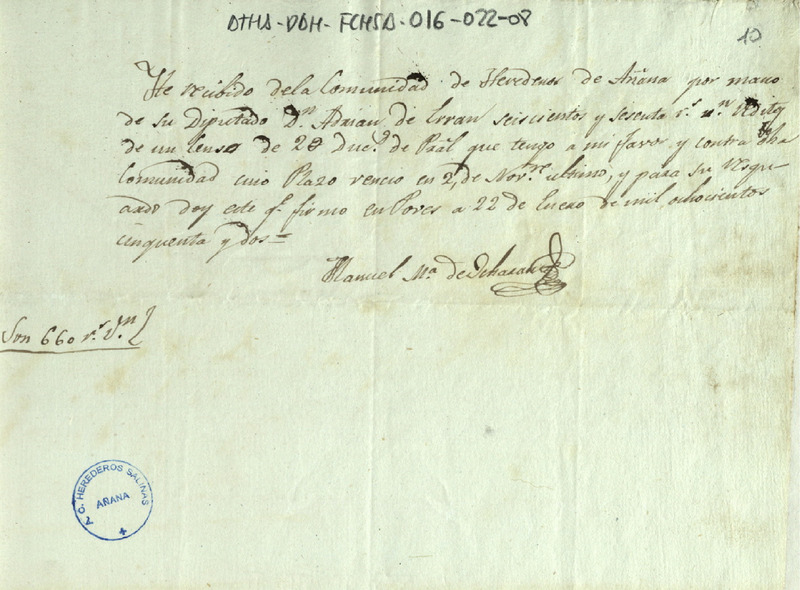 ATHA-DAH-FCHSA-016-022-08
10
He recibido de la Comunidad de Herederos de Añana por mano
de su Diputado Dn. Adrian de Erran seiscientos y sesenta rs. vn. Redito
de un Censo de 2 Duc.s de Pral que tengo a mi favor y contra dha
Comunidad cuio Plazo vencio en 2, de Novre. ultimo, y para su resgu
ardo doy este qe. firmo en Poves a 22 de Enero de mil ochocientos
cinquenta y dos=
Manuel Ma. de
Son 660 rs. Vn.
A. C. HEREDEROS SALINAS
AÑANA